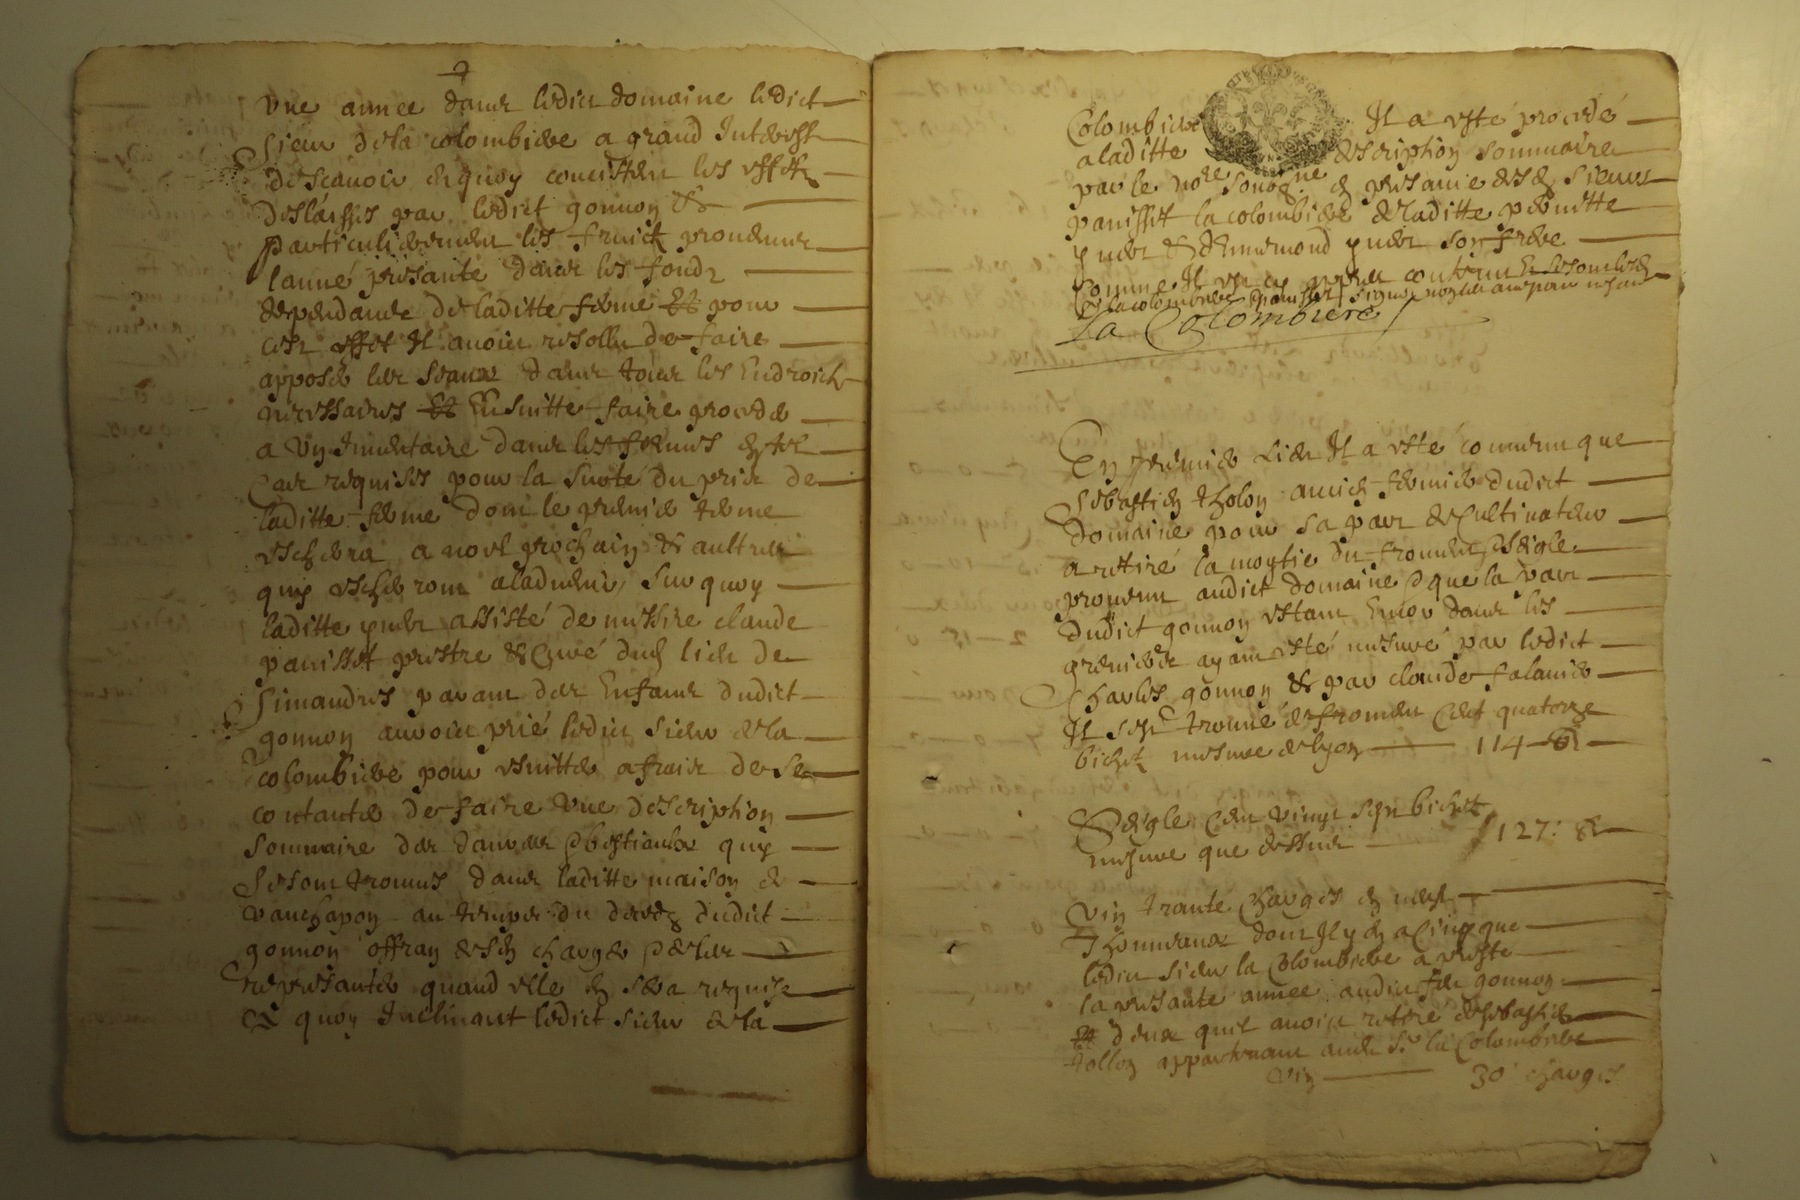 une annee dans ledict domaine ledict
sieur de la colombiere a grand Interest
de scavoir en quoy consistent les effects
delaissés par ledict gonnon &
particulierement les fruicts provenus
lanné presante dans les fonds
dependants de laditte ferme Et pour
cest effet Il avoit resollu de faire
apposer les seaux dans tous les Endroicts
necessaires Et Ensuitte faire proceder
a un Inventaire dans les formes en tel
cas requises pour la sureté du prix de
laditte ferme dont le premier terme
eschera a noel prochain & aultres
quy escheront a ladvenir, sur quoy
laditte assisté de messire claude
panisset prestre & curé dud lieu de
Simandres parant des Enfans dudict
gonnon auroit prié ledict sieur de la
colombiere pour esvitter a fraix de se
contanter de faire une description
sommaire des danrées & bestiaulx quy
se sont trouvés dans laditte maison de
vauchapon au temps du decedz dudict
gonnon offran de sen charger & de les
represanter quand elle en sera requise
A quoy Inclinant ledict sieur de la
Colombiere Il a esté procedé
a laditte description sommaire
par le no.re soubz.né en presance desd. sieurs
panisset la colombiere & laditte
& son frere
La Colombiere
En premier Lieu Il a esté convenu que
Sebastien tholon ancien fermier dudict
domaine pour sa part de Cultivateur
a retiré la moytie du froment & seigle
provenu audict domaine & que la part
dudict gonnon estant Encor dans les
greniers ayant esté mesuré par ledict
Charles gonnon & par claude falanier
Il sest trouvé de froment Cent quatorze
bichets mesure de lyon 114 B
Seigle Cent vingt sept bichets
mesure que dessus 127: B
vin trante charges en neuf
Thonneaux dont Il y en a Cinq que
ledict sieur la Colombiere a presté
la presante annee audict feu gonnon
Et deux quil avoit retiré de sebastien
tollon appartenant aud. Sr. la Colombiere
vin 30 charges